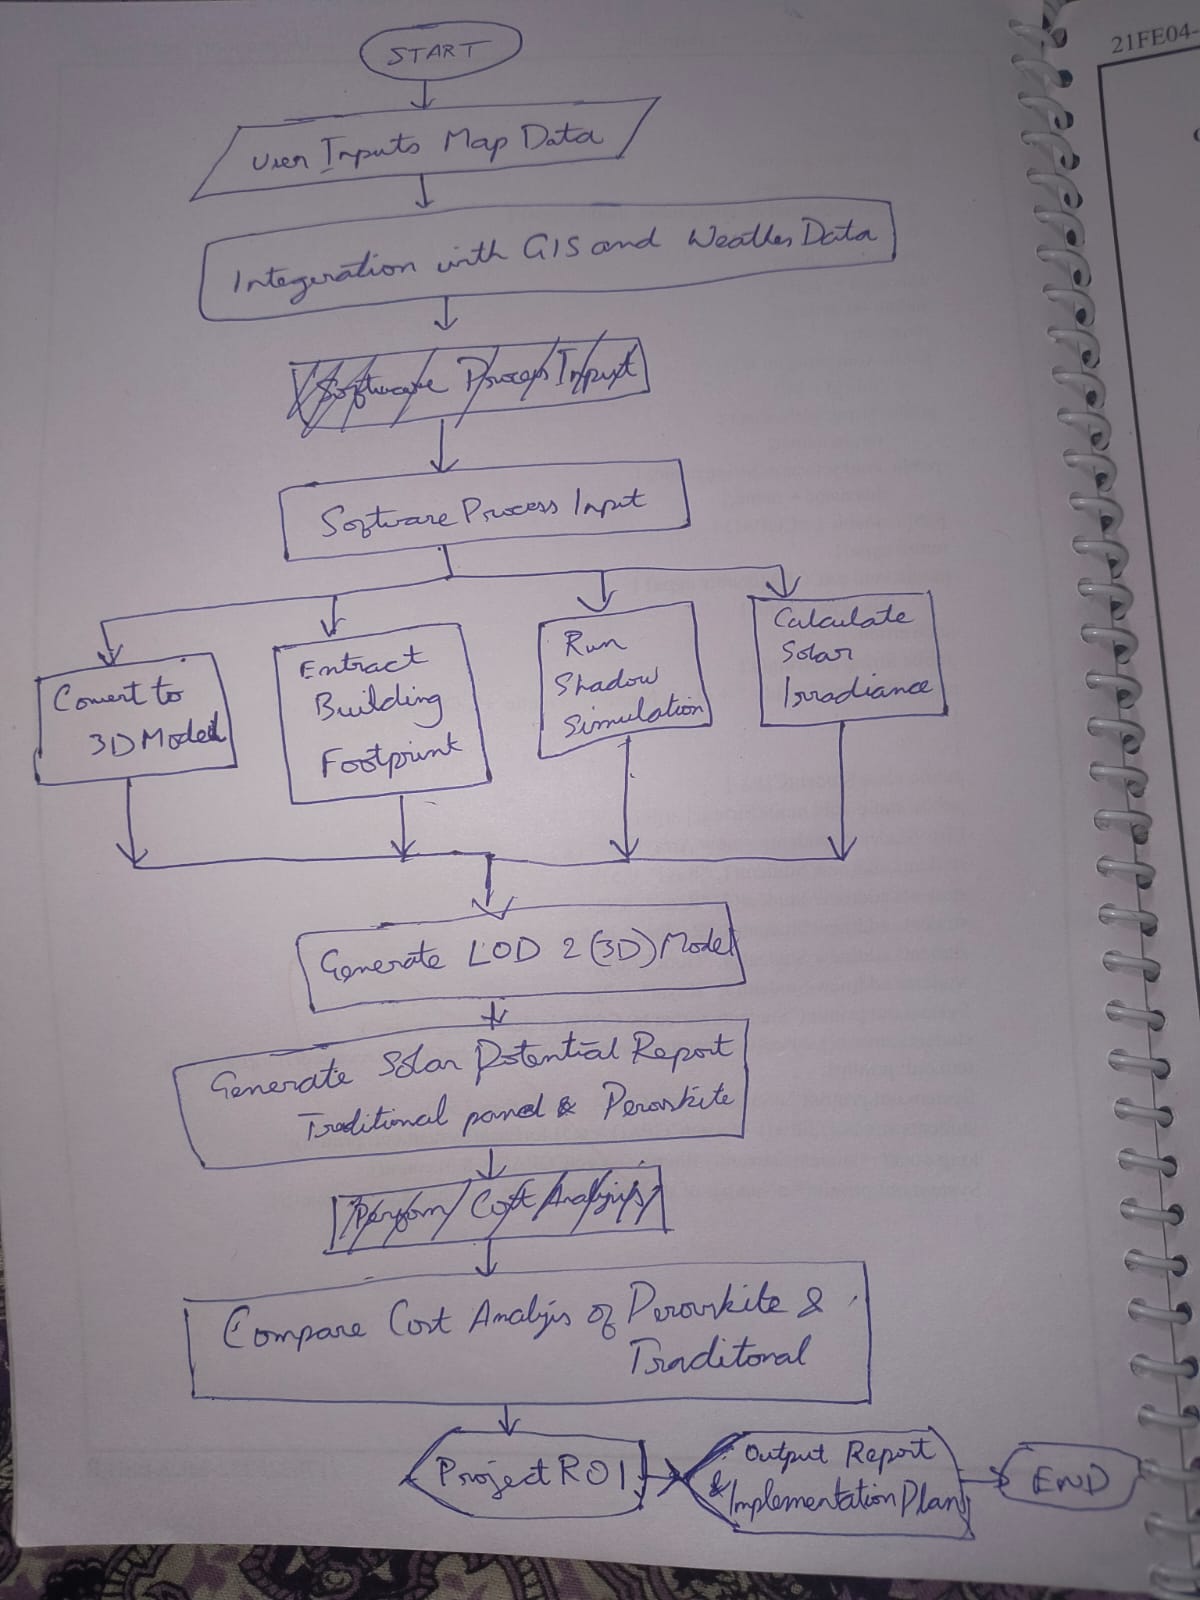 21FE04-
START
User Inputs Map Data
Integeration with GIS and Weather Data
Software Process Input
Software Process Input
Convert to
3D Model
Extract
Building
Footprint
Run
Shadow
Simulation
Calculate
Solar
Irradiance
Generate LOD 2 (3D) Model
Generate Solar Potential Report
Traditional panel & Perovskite
Perform Cost Analysis
Compare Cost Analysis of Perovskite &
Traditonal
Project ROI
Output Report
& Implementation Plan
END